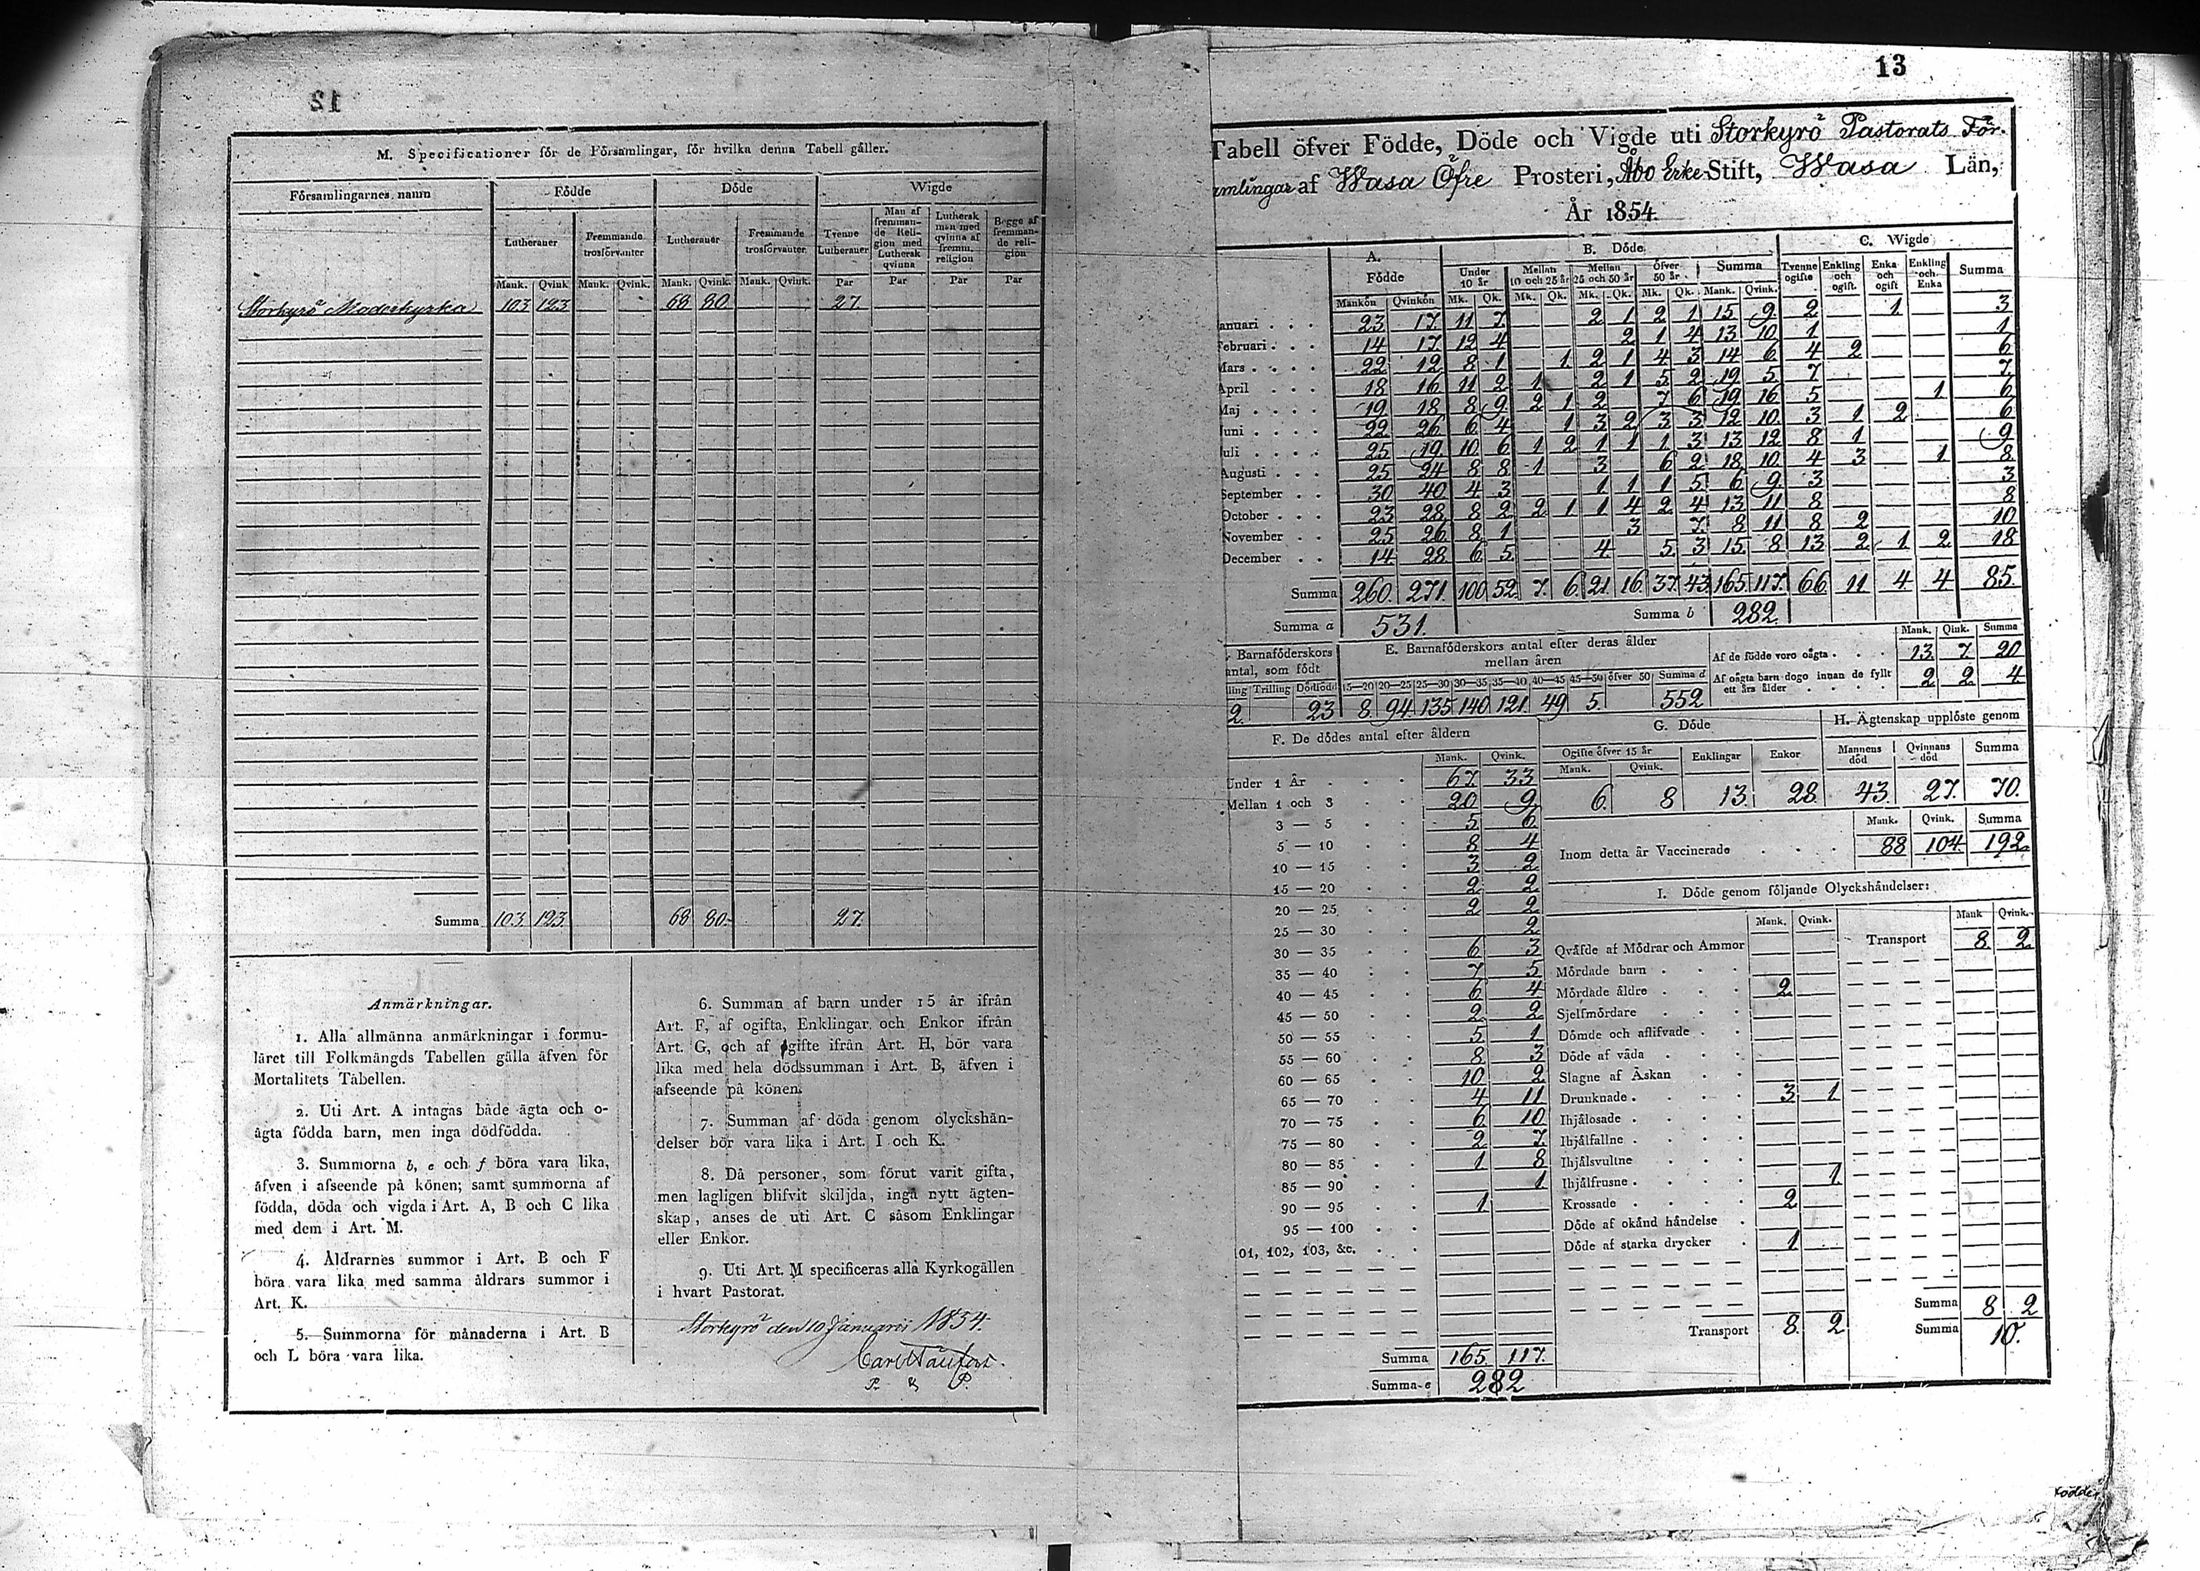 12
M. Specificationer för de Församlingar, för hvilka denna Tabell gäller.
Församlingarnes namn Födde Döde Wigde
Lutheraner Fremmande trosförvanter Lutheraner Fremmande trosförvanter Tvenne Lutheraner Man af fremman-de Reli-gion med Luthersk qvinna Luthersk man med qvinna af fremm. religion Begge af fremman-de reli-gion
Mank. Qvink. Mank. Qvink. Mank. Qvink. Mank. Qvink. Par Par Par Par
Storkyrö Moderkyrka 103 123 68 80 27.
Summa 103 123 68 80 27.
Anmärkningar.
1. Alla allmänna anmärkningar i formu-
läret till Folkmängds Tabellen gälla äfven för
Mortalitets Tabellen.
2. Uti Art. A intagas både ägta och o-
ägta födda barn, men inga dödfödda.
3. Summorna b, e och f böra vara lika,
äfven i afseende på könen; samt summorna af
födda, döda och vigda i Art. A, B och C lika
med dem i Art. M.
4. Åldrarnes summor i Art. B och F
böra vara lika med samma åldrars summor i
Art. K.
5. Summorna för månaderna i Art. B
och L böra vara lika.
6. Summan af barn under 15 år ifrån
Art. F, af ogifta, Enklingar och Enkor ifrån
Art. G, och af gifte ifrån Art. H, bör vara
lika med hela dödssumman i Art. B, äfven i
afseende på könen.
7. Summan af döda genom olyckshän-
delser bör vara lika i Art. I och K.
8. Då personer, som förut varit gifta,
men lagligen blifvit skiljda, ingå nytt ägten-
skap, anses de uti Art. C såsom Enklingar
eller Enkor.
9. Uti Art. M specificeras alla Kyrkogällen
i hvart Pastorat.
Storkyrö den 10 Januarii 1854.
P. & P.
13
Tabell öfver Födde, Döde och Vigde uti Storkyrö Pastorats För-
amlingar af Wasa Öfre Prosteri, Åbo Erke-Stift, Wasa Län,
År 1854.
A. Födde B. Döde C. Wigde
Under 10 år Mellan 10 och 25 år Mellan 25 och 50 år Öfver 50 år Summa Tvenne ogifte Enkling och ogift. Enka och ogift Enkling och Enka Summa
Mankön Qvinkön Mk. Qk. Mk. Qk. Mk. Qk. Mk. Qk. Mank. Qvink.
anuari . . . 23 17 11 7 2 1 2 1 15 9 2 1 3
Februari . . . 14 17 12 4 2 1 4 13 10 1 1
Mars . . . . 22 12 8 1 1 2 1 4 3 14 6 4 2 6
April . . . 18 16 11 2 1 2 1 5 2 19 5 7 7
Maj . . . . 19 18 8 9 2 1 2 7 6 19 16 5 1 6
Juni . . . . 22 26 6 4 1 3 2 3 3 12 10 3 1 2 6
Juli . . . . 25 19 10 6 1 2 1 1 1 3 13 12 8 1 9
Augusti . . . 25 24 8 8 1 3 6 2 18 10 4 3 1 8
September . . 30 40 4 3 1 1 1 5 6 9 3 3
October . . . 23 28 8 2 2 1 1 4 2 4 13 11 8 8
November . . 25 26 8 1 3 7 8 11 8 2 10
December . . 14 28 6 5 4 5 3 15 8 13 2 1 2 18
Summa 260 271 100 52 7 6 21 16 37 43 165 117 66 11 4 4 85
Summa a 531. Summa b 282
. Barnaföderskors antal, som födt
ling Trilling Dödfödd
2 23
E. Barnaföderskors antal efter deras ålder
mellan åren
15—20 20—25 25—30 30—35 35—40 40—45 45—50 öfver 50 Summa d
8 94 135 140 121 49 5 552
Mank. Qink. Summa
Af de födde voro oägta . . . 13 7 20
Af oägta barn dogo innan de fyllt
ett års ålder . . . . 2 2 4
F. De dödes antal efter åldern
Mank. Qvink.
Under 1 År 67 33
Mellan 1 och 3 20 9
3 — 5 5 6
5 — 10 8 4
10 — 15 3 2
15 — 20 2 2
20 — 25 2 2
25 — 30 2
30 — 35 6 3
35 — 40 7 5
40 — 45 6 4
45 — 50 2 2
50 — 55 5 1
55 — 60 8 3
60 — 65 10 2
65 — 70 4 11
70 — 75 6 10
75 — 80 2 7
80 — 85 1 8
85 — 90 1
90 — 95 1
95 — 100
101, 102, 103, &c.
Summa 165 117
Summa e 282
G. Döde
Ogifte öfver 15 år Enklingar Enkor
Mank. Qvink.
6 8 13 28
H. Ägtenskap upplöste genom
Mannens död Qvinnans död Summa
43 27 70
Mank. Qvink. Summa
Inom detta år Vaccinerade . . . 88 104 192
I. Döde genom följande Olyckshändelser:
Mank. Qvink. Mank Qvink.
Qväfde af Mödrar och Ammor Transport 8 2
Mördade barn . . .
Mördade äldre . . . 2
Sjelfmördare . . .
Dömde och aflifvade . .
Döde af våda . . .
Slagne af Åskan . .
Drunknade . . . . 3 1
Ihjälosade . . . .
Ihjälfallne . . . .
Ihjälsvultne . . .
Ihjälfrusne . . . . 1
Krossade . . . . 2
Döde af okänd händelse .
Döde af starka drycker . 1
Transport 8 2
Summa 8 2
Summa 10.